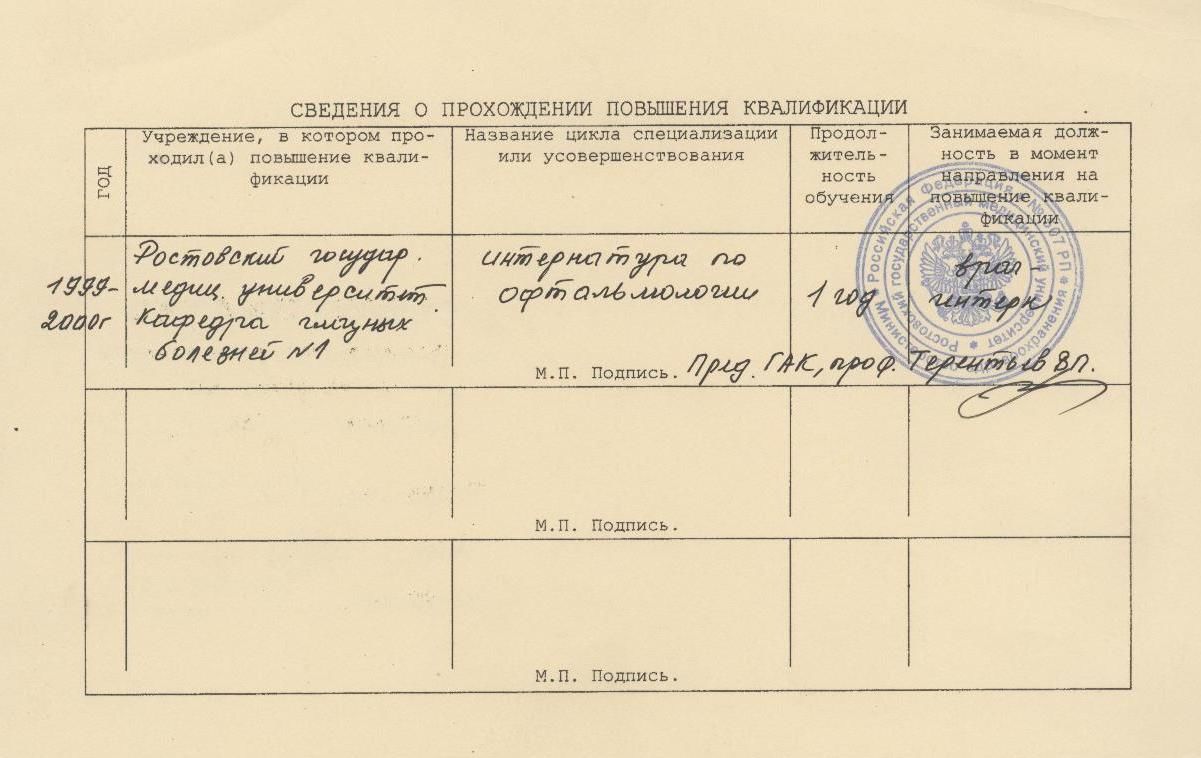 СВЕДЕНИЯ О ПРОХОЖДЕНИИ ПОВЫШЕНИЯ КВАЛИФИКАЦИИ
ГОД
Учреждение, в котором про-
ходил(а) повышение квали-
фикации
Название цикла специализации
или усовершенствования
Продол-
житель-
ность
обучения
Занимаемая долж-
ность в момент
направления на
повышение квали-
фикации
1999-
2000г
Ростовский государ.
медиц. университет
Кафедра глазных
болезней №1
интернатура по
офтальмологии
1 год
врач-
интерн
М.П. Подпись. Пред. ГАК, проф. Терентьев В.П.
Российская Федерация
Ростовский государственный медицинский университет
М.П. Подпись.
М.П. Подпись.